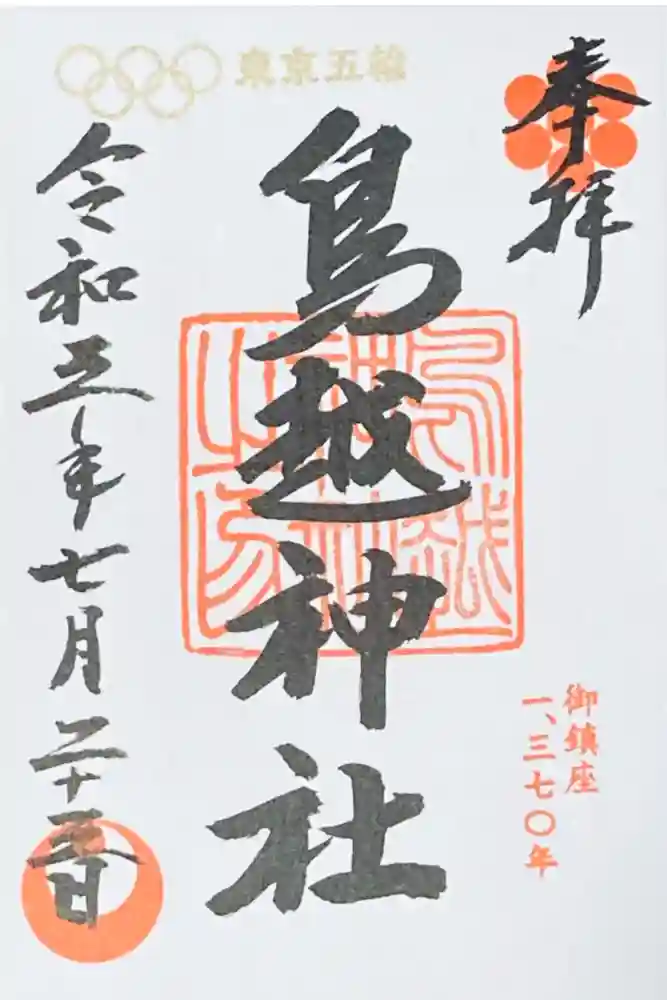 奉拝
東京五輪
鳥越神社
御鎮座
一、三七〇年
令和三年七月二十三日